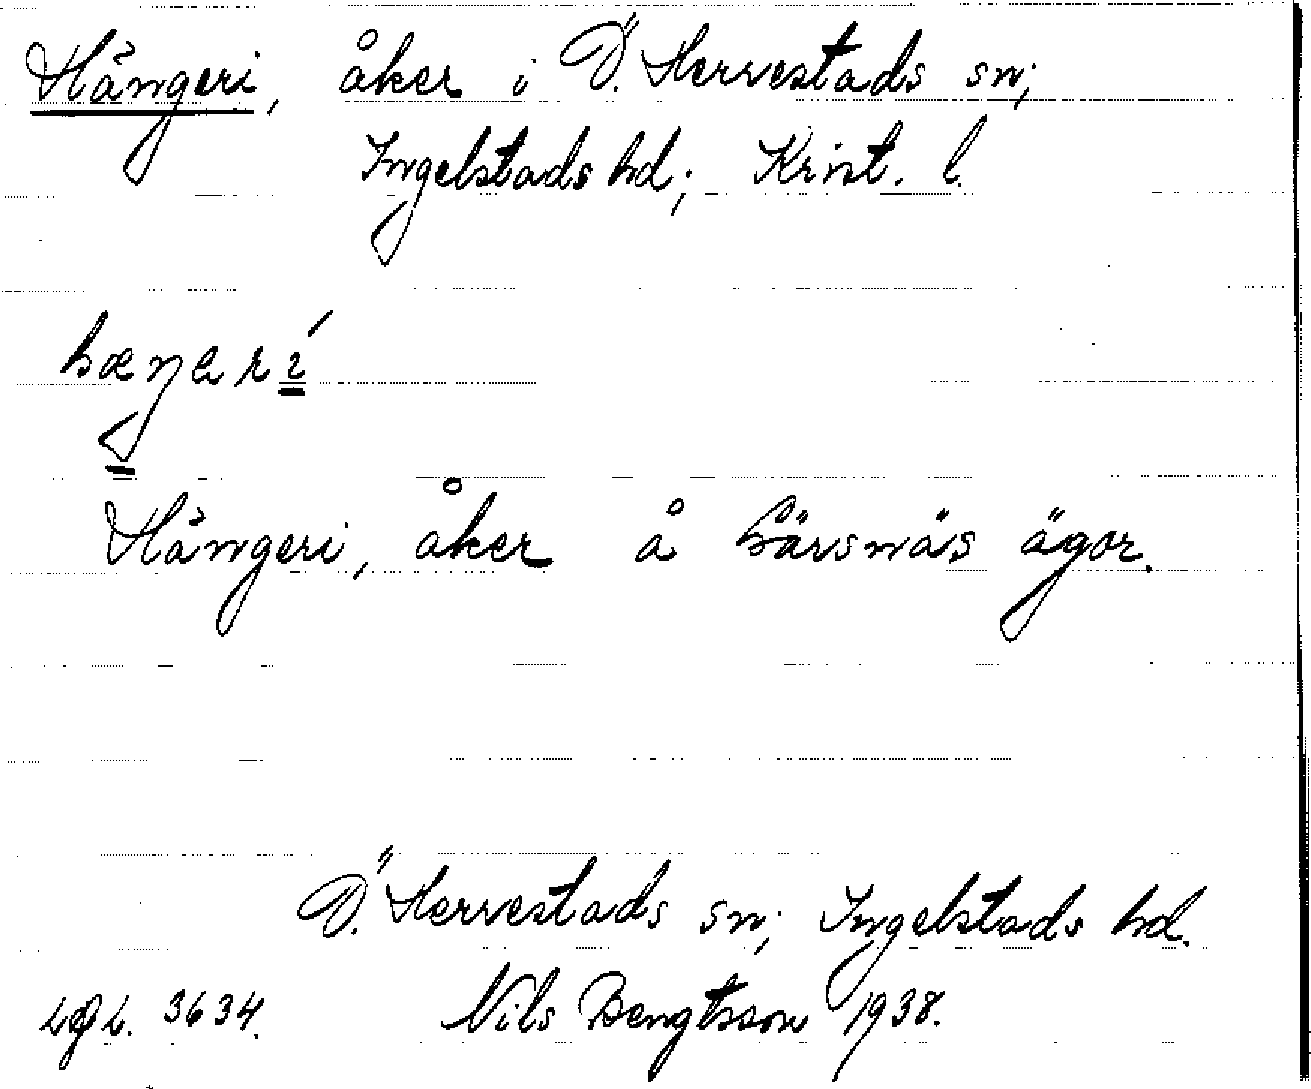 Hängeri, åker i Ö. Herrestads sn;
Ingelstads hd; Krist. l.
hæŋarí
Hängeri, åker å Härsnäs ägor.
Ö. Herrestads sn; Ingelstads hd.
3634. Nils Bengtsson 1938.